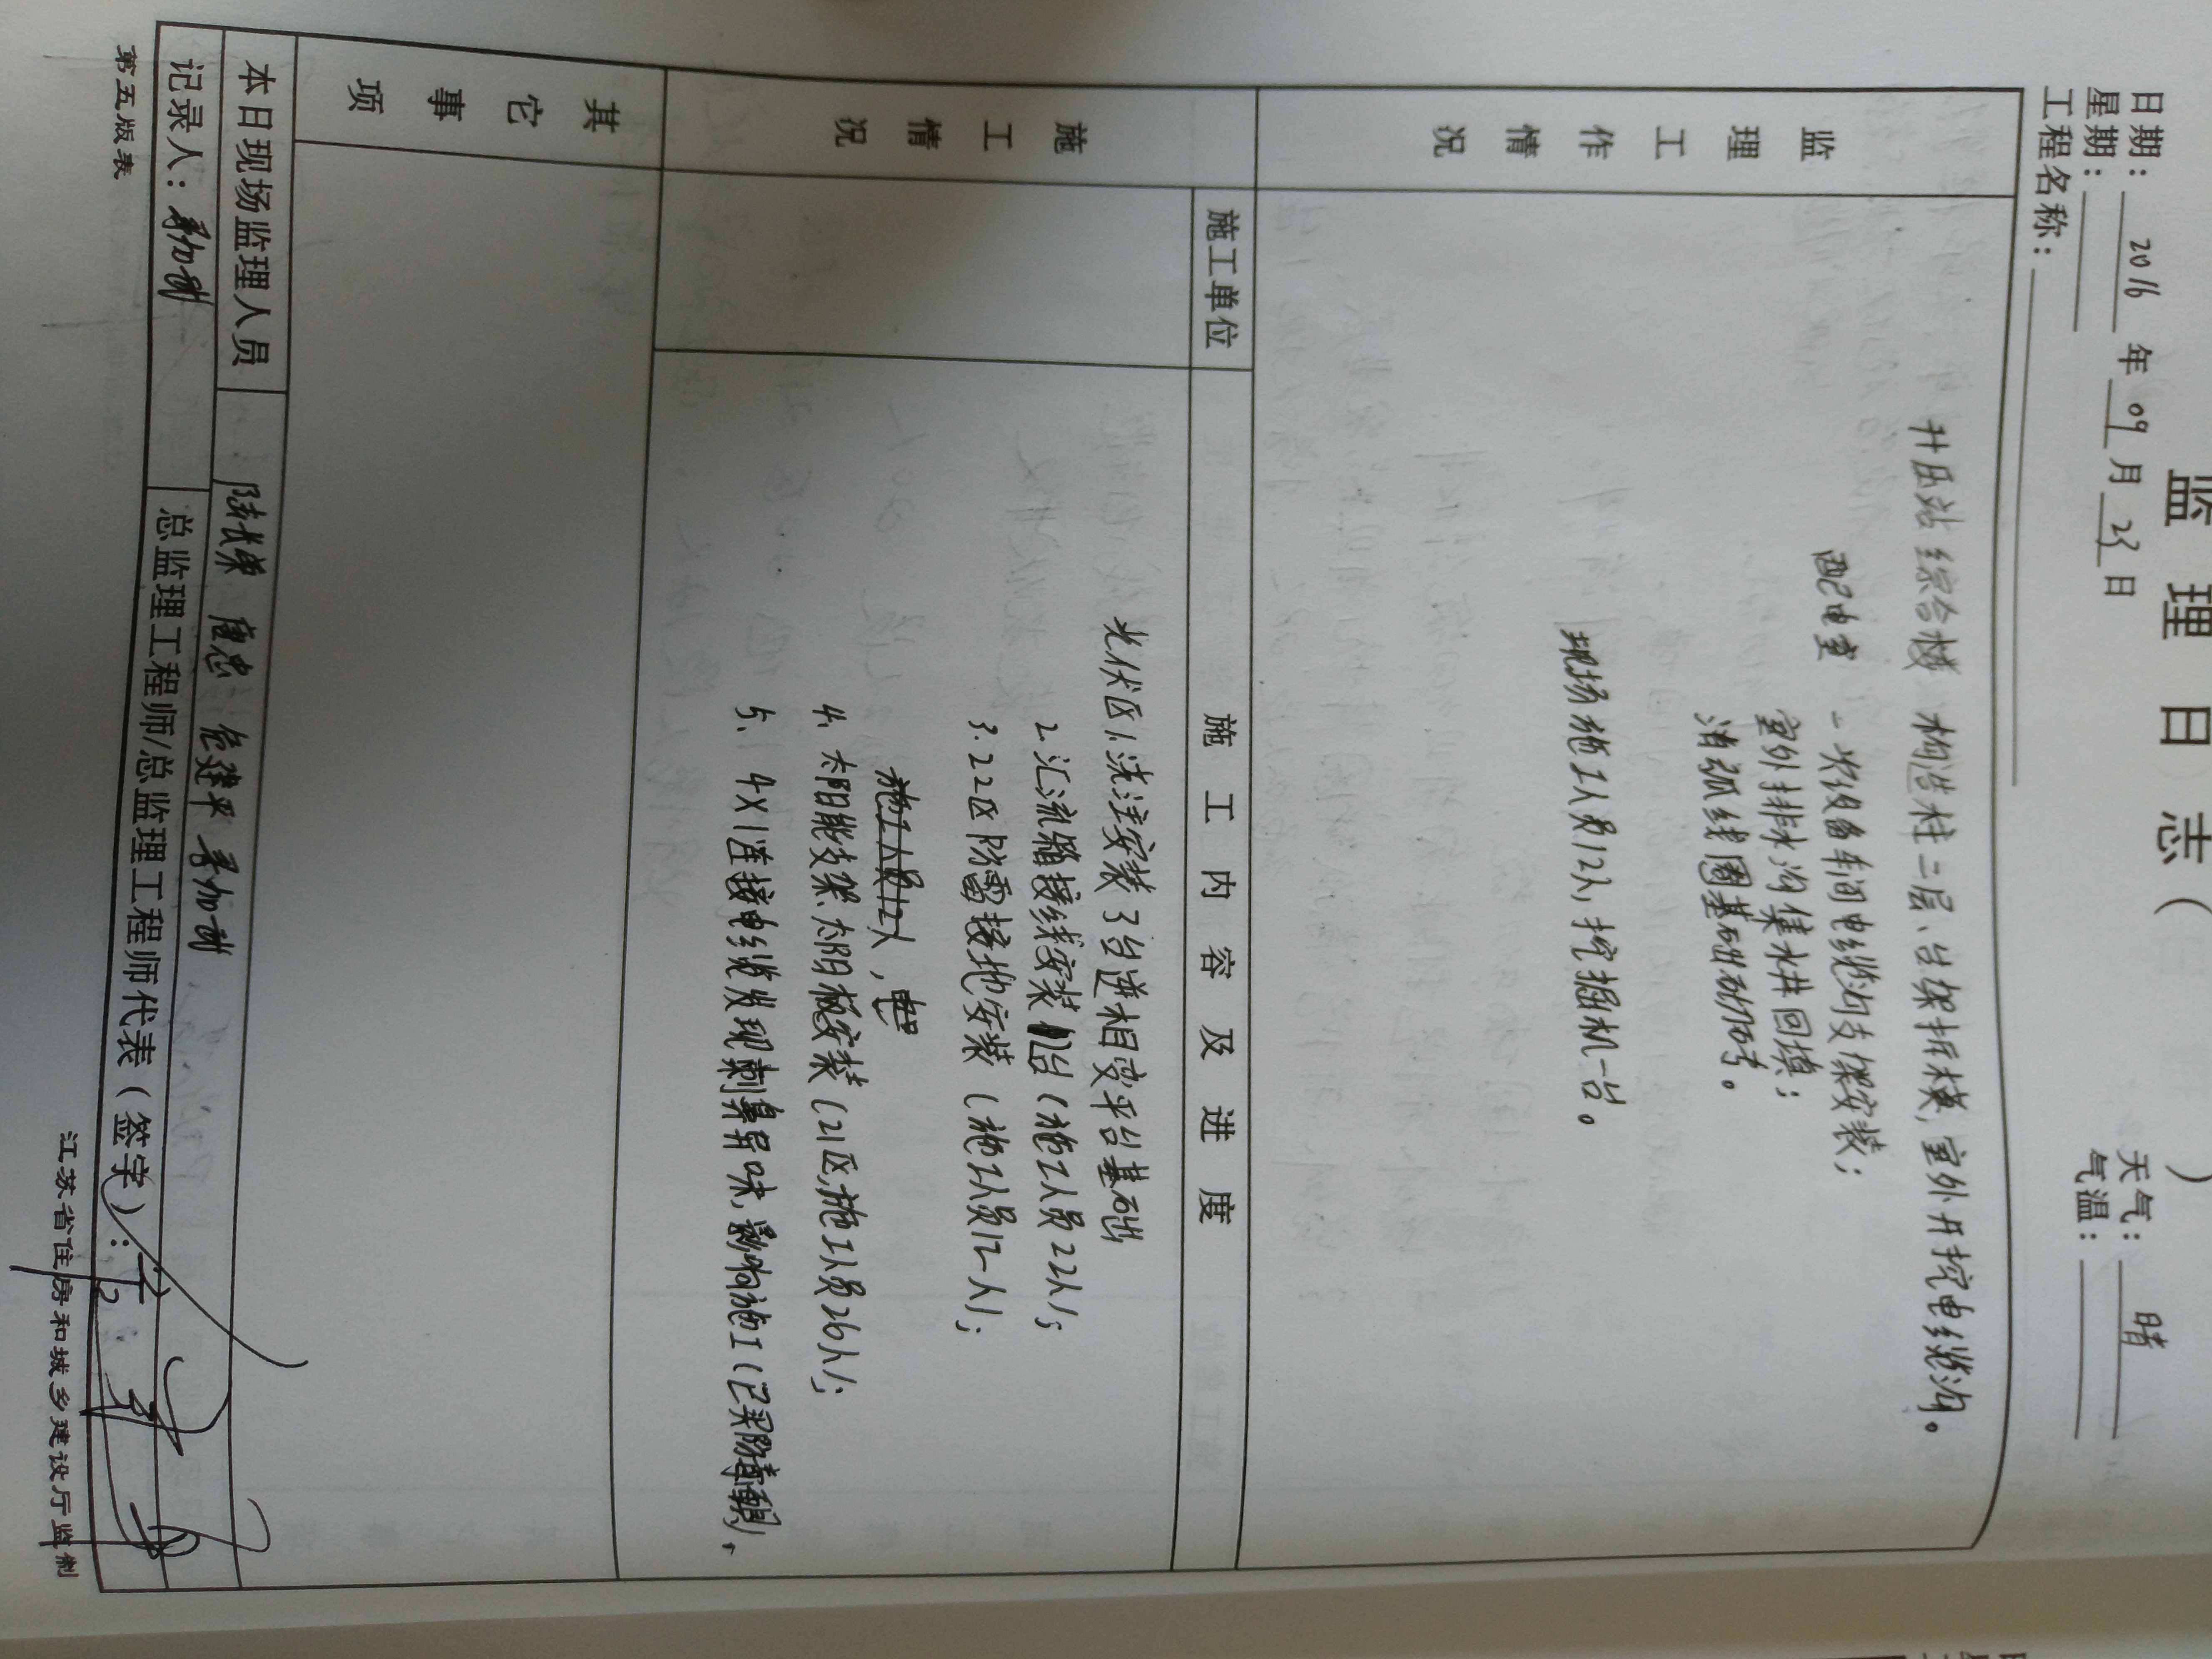 监理日志（ ）
日期：2016年09月23日 天气：晴
星期： 气温：
工程名称：
监理工作情况
升压站 综合楼 构造柱二层、台架拆模，室外开挖电缆沟。
配电室 一次设备车间电缆沟支架安装；
室外排水沟集水井回填；
消弧线圈基础砌砖。
现场施工人员12人，挖掘机一台。
施工情况
施工单位 施工内容及进度
光伏区1.浇注安装3台逆相变平台基础
2.汇流箱接线安装 台（施工人员22人）；
3.22区防雷接地安装（施工人员12人）；
施工人员12人，
4、太阳能支架、太阳板安装（21区，施工人员26人）；
5、4X1连接电缆发现刺鼻异味，影响施工（已买防毒
其它事项
本日现场监理人员 陆长荣 唐忠 危建平
记录人： 总监理工程师/总监理工程师代表（签字）：
第五版表 江苏省住房和城乡建设厅监制